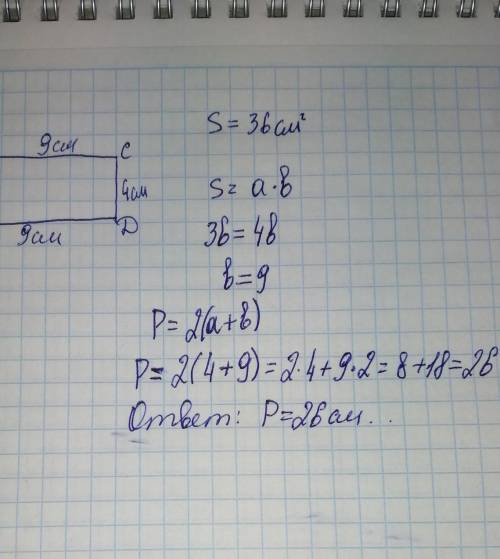 9 см C
4 см
9 см D
S = 36 см²
S = a · b
36 = 4b
b = 9
P = 2(a+b)
P = 2(4+9) = 2·4+9·2 = 8+18=26
Ответ: P=26 см..